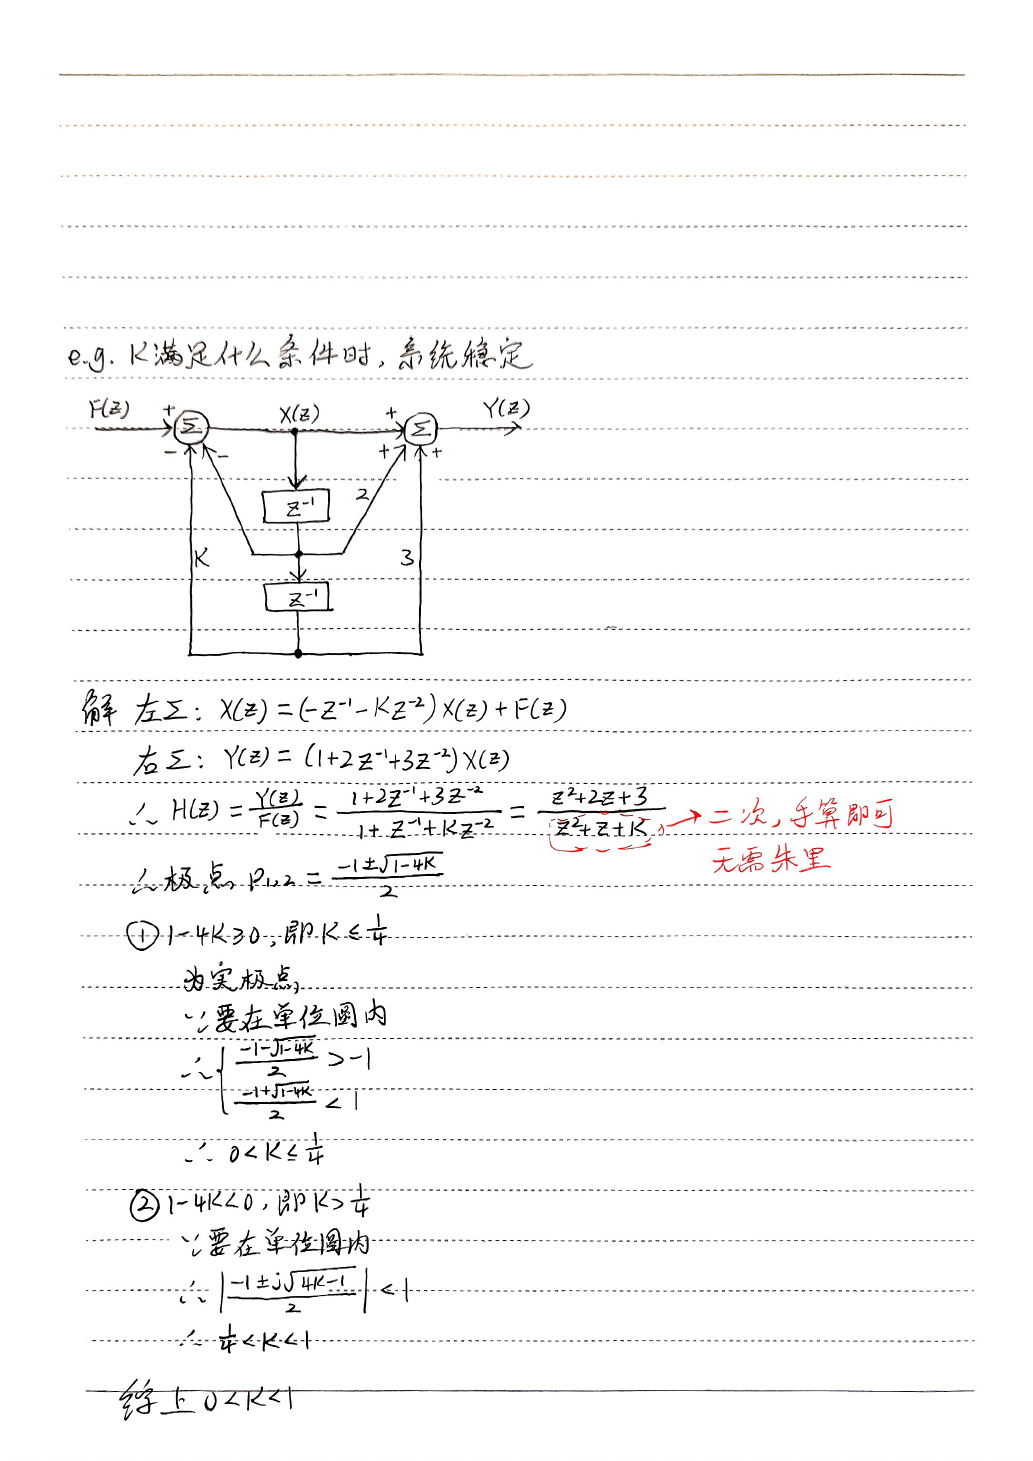 e.g. K满足什么条件时,系统稳定
F(z) + Σ X(z) + Σ Y(z)
- - + +
z⁻¹ 2
K 3
z⁻¹
解 左Σ: X(z)=(-z⁻¹-Kz⁻²)X(z)+F(z)
右Σ: Y(z)=(1+2z⁻¹+3z⁻²)X(z)
∴ H(z)=Y(z)/F(z)=(1+2z⁻¹+3z⁻²)/(1+z⁻¹+Kz⁻²)=(z²+2z+3)/(z²+z+K) → 二次,手算即可
无需朱里
∴极点 p₁,₂=(-1±√(1-4K))/2
① 1-4K≥0,即K≤1/4
为实极点,
∵要在单位圆内
∴{(-1-√(1-4K))/2>-1
(-1+√(1-4K))/2<1
∴ 0<K≤1/4
② 1-4K<0,即K>1/4
∵要在单位圆内
∴|(-1±j√(4K-1))/2|<1
∴ 1/4<K<1
综上 0<K<1